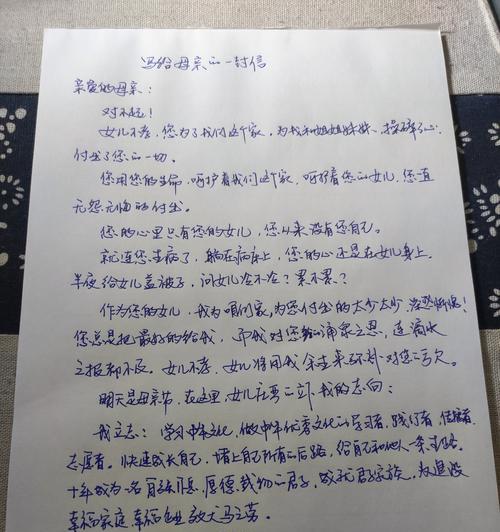 写给母亲的一封信
亲爱的母亲：
对不起！
女儿不孝，您为了我们这个家，为我和姐姐妹妹，操碎了心，
付出了您的一切。
您用您的生命，呵护着我们这个家，呵护着您的女儿，您直
无怨无悔的付出。
您的心里只有您的女儿，您从来没有您自己。
就连您生病了，躺在病床上，您的心还是在女儿身上，
半夜给女儿盖被子，问女儿冷不冷？累不累？
作为您的女儿，我为咱们家，为您付出的太少太少，深感惭愧！
您总是把最好的给我，而我对您的涌泉之恩，连滴水
之报都不及。女儿不孝，女儿将用我余生来弥补对您的亏欠。
明天是母亲节，在这里，女儿在要立下我的志向：
我立志：学习中华文化，做中华优秀文化的学习者，践行者，传播者，
志愿者。快速成长自己，堵上自己所有的后路，给自己和他人一条出路。
十年成为一名自强不息，厚德载物的君子，成就君子家族，为建设
幸福家庭幸福企业效犬马之劳。